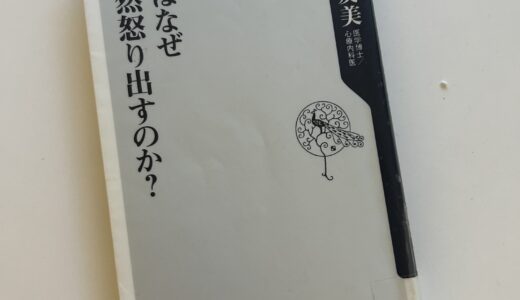 はなぜ
然怒り出すのか?
美
医学博士/
心療内科医